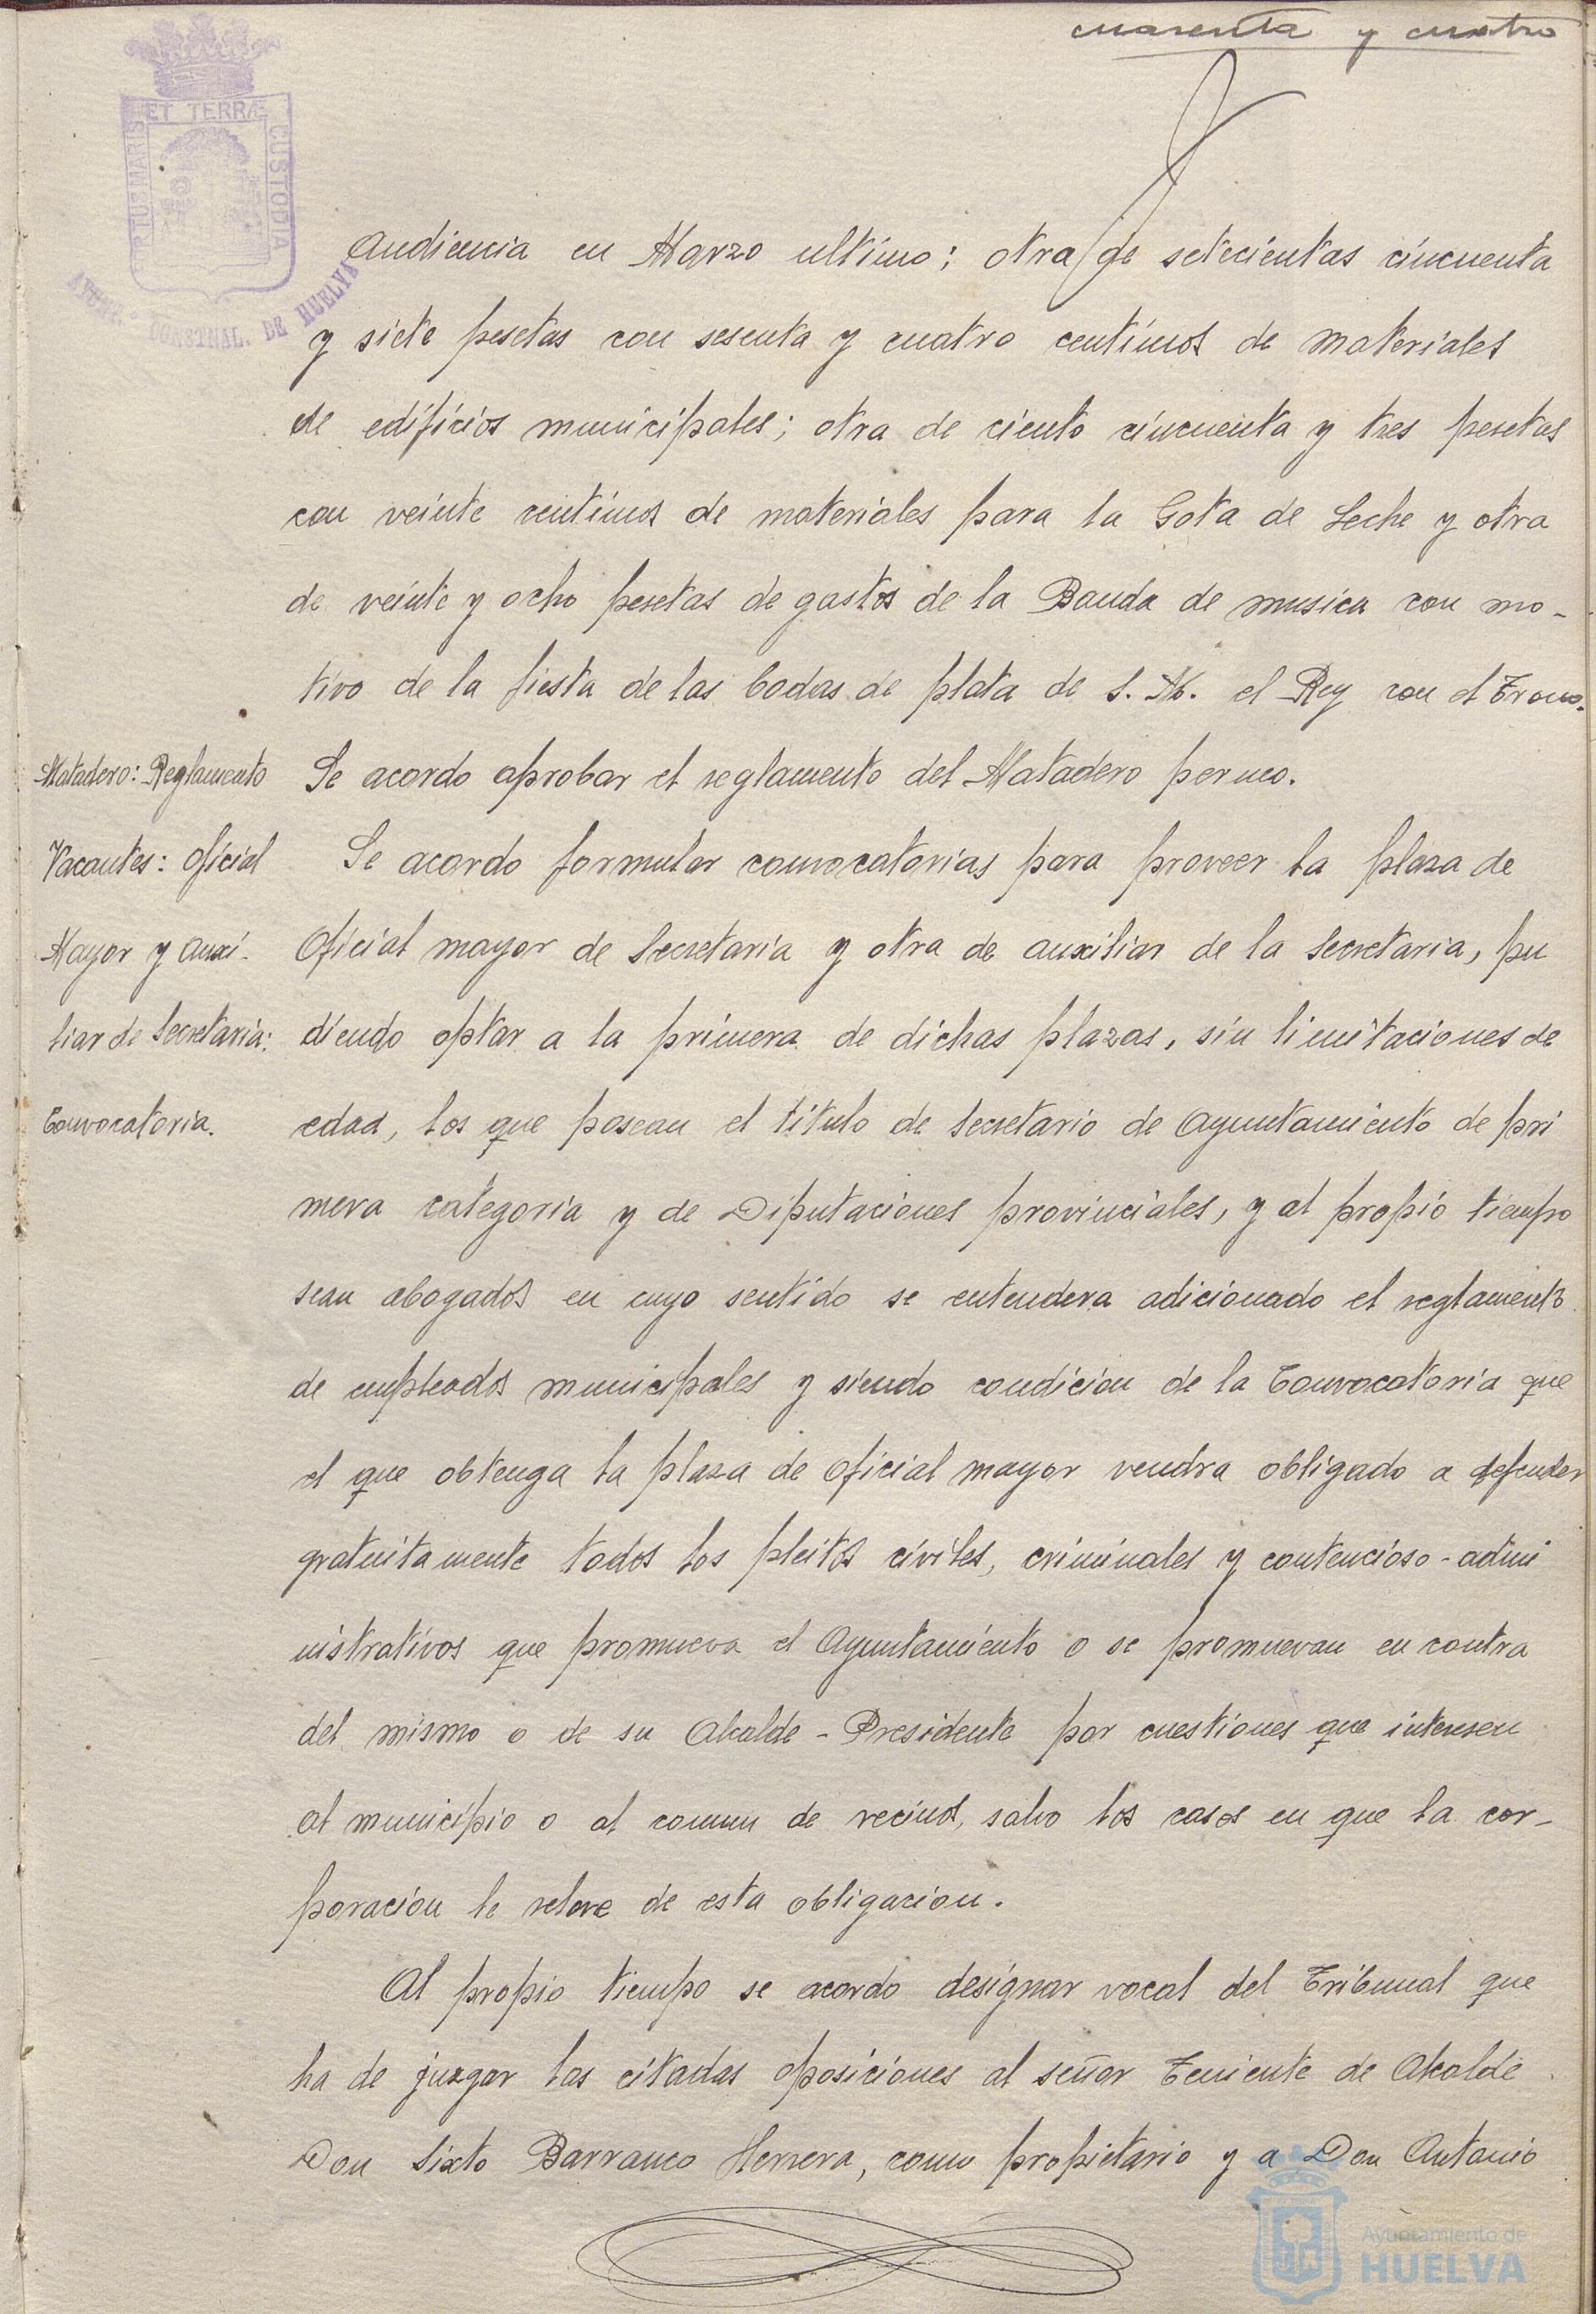 cuarenta y cuatro
PORTUS MARIS ET TERRÆ CUSTODIA
AYUNT.º CONSTNAL. DE HUELVA
Audiencia en Marzo ultimo; otra de setecientas cincuenta
y siete pesetas con sesenta y cuatro centimos de materiales
de edificios municipales; otra de ciento cincuenta y tres pesetas
con veinte centimos de materiales para la Gota de Leche y otra
de veinte y ocho pesetas de gastos de la Banda de musica con mo-
tivo de la fiesta de las bodas de plata de S. M. el Rey con el Trono.
Matadero: Reglamento
Se acordo aprobar el reglamento del Matadero
Vacantes: Oficial
Se acordo formular convocatorias para proveer la plaza de
Mayor y auxi-
Oficial mayor de Secretaria y otra de auxiliar de la Secretaria, pu
liar de Secretaria:
diendo optar a la primera de dichas plazas, sin limitaciones de
Convocatoria.
edad, los que posean el titulo de Secretario de Ayuntamiento de pri
mera categoria y de Diputaciones provinciales, y al propio tiempo
sean abogados en cuyo sentido se entendera adicionado el reglamento
de empleados municipales y siendo condicion de la Convocatoria que
el que obtenga la plaza de Oficial mayor vendra obligado a defender
gratuitamente todos los pleitos civiles, criminales y contencioso-admi
nistrativos que promueva el Ayuntamiento o se promuevan en contra
del mismo o de su Alcalde-Presidente por cuestiones que interesen
al municipio o al comun de vecinos, salvo los casos en que la cor-
poracion le releve de esta obligacion.
Al propio tiempo se acordo designar vocal del Tribunal que
ha de juzgar las citadas oposiciones al señor Teniente de Alcalde
Don Sixto Barranco Herrera, como propietario y a Don Antonio
Ayuntamiento de
HUELVA